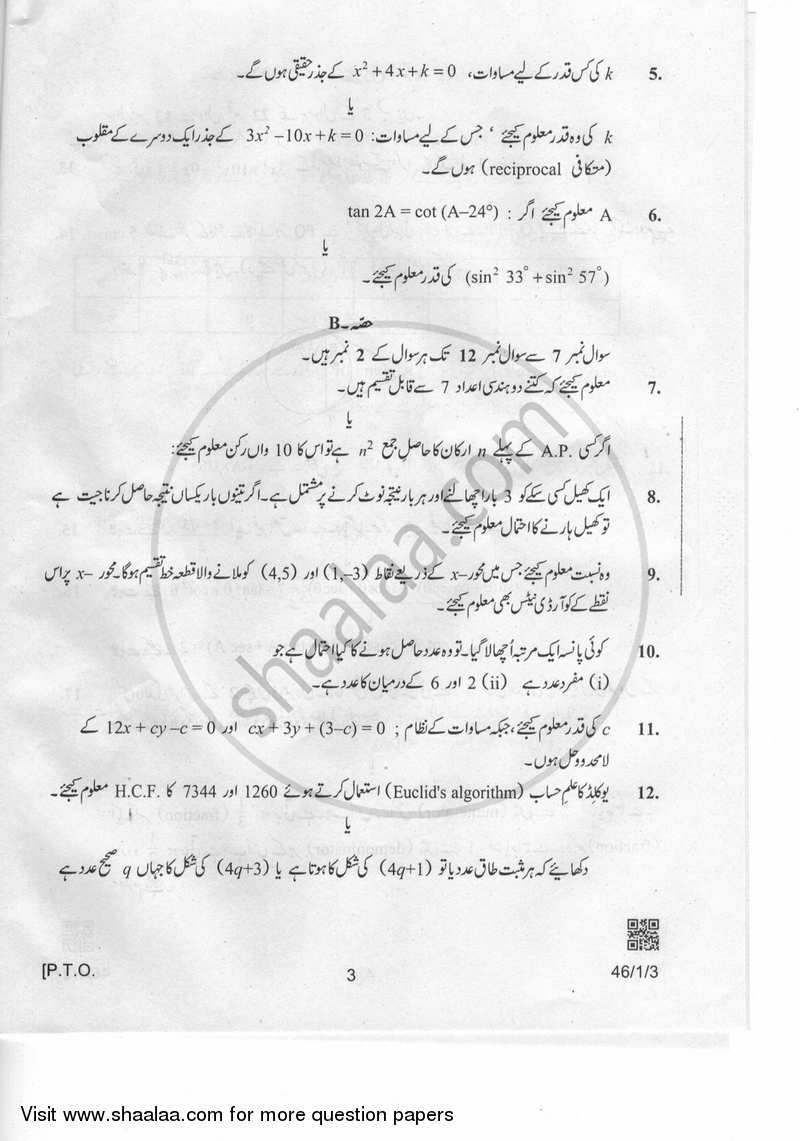 5. k کی کس قدر کے لیے مساوات، x² + 4x + k = 0 کے جذر حقیقی ہوں گے۔
یا
k کی وہ قدر معلوم کیجئے، جس کے لیے مساوات: 3x² –10x + k = 0 کے جذر ایک دوسرے کے مقلوب
(متکافی reciprocal) ہوں گے۔
6. A معلوم کیجئے اگر : tan 2A = cot (A–24°)
یا
(sin² 33° + sin² 57°) کی قدر معلوم کیجئے۔
حصّہ۔B
سوال نمبر 7 سے سوال نمبر 12 تک ہر سوال کے 2 نمبر ہیں۔
7. معلوم کیجئے کہ کتنے دو ہندسی اعداد 7 سے قابل تقسیم ہیں۔
یا
اگر کسی A.P. کے پہلے n ارکان کا حاصل جمع n² ہے تو اس کا 10 واں رکن معلوم کیجئے:
8. ایک کھیل کسی سکّے کو 3 بار اچھالنے اور ہر بار نتیجہ نوٹ کرنے پر مشتمل ہے۔ اگر تینوں بار یکساں نتیجہ حاصل کرنا جیت ہے
تو کھیل ہارنے کا احتمال معلوم کیجئے۔
9. وہ نسبت معلوم کیجئے جس میں محور–x کے ذریعے نقاط (1,–3) اور (4,5) کو ملانے والا قطعہ خط تقسیم ہوگا۔ محور –x پر اس
نقطے کے کوآرڈی نیٹس بھی معلوم کیجئے۔
10. کوئی پانسہ ایک مرتبہ اُچھالا گیا۔ تو وہ عدد حاصل ہونے کا کیا احتمال ہے جو
(i) مفرد عدد ہے (ii) 2 اور 6 کے درمیان کا عدد ہے۔
11. c کی قدر معلوم کیجئے، جبکہ مساوات کے نظام ; cx + 3y + (3–c) = 0 اور 12x + cy –c = 0 کے
لامحدود حل ہوں۔
12. یوکلڈ کا علم حساب (Euclid's algorithm) استعمال کرتے ہوئے 1260 اور 7344 کا H.C.F. معلوم کیجئے۔
یا
دکھایئے کہ ہر مثبت طاق عدد یا تو (4q+1) کی شکل کا ہوتا ہے یا (4q+3) کی شکل کا جہاں q صحیح عدد ہے
[P.T.O. 3 46/1/3
shaalaa.com
Visit www.shaalaa.com for more question papers